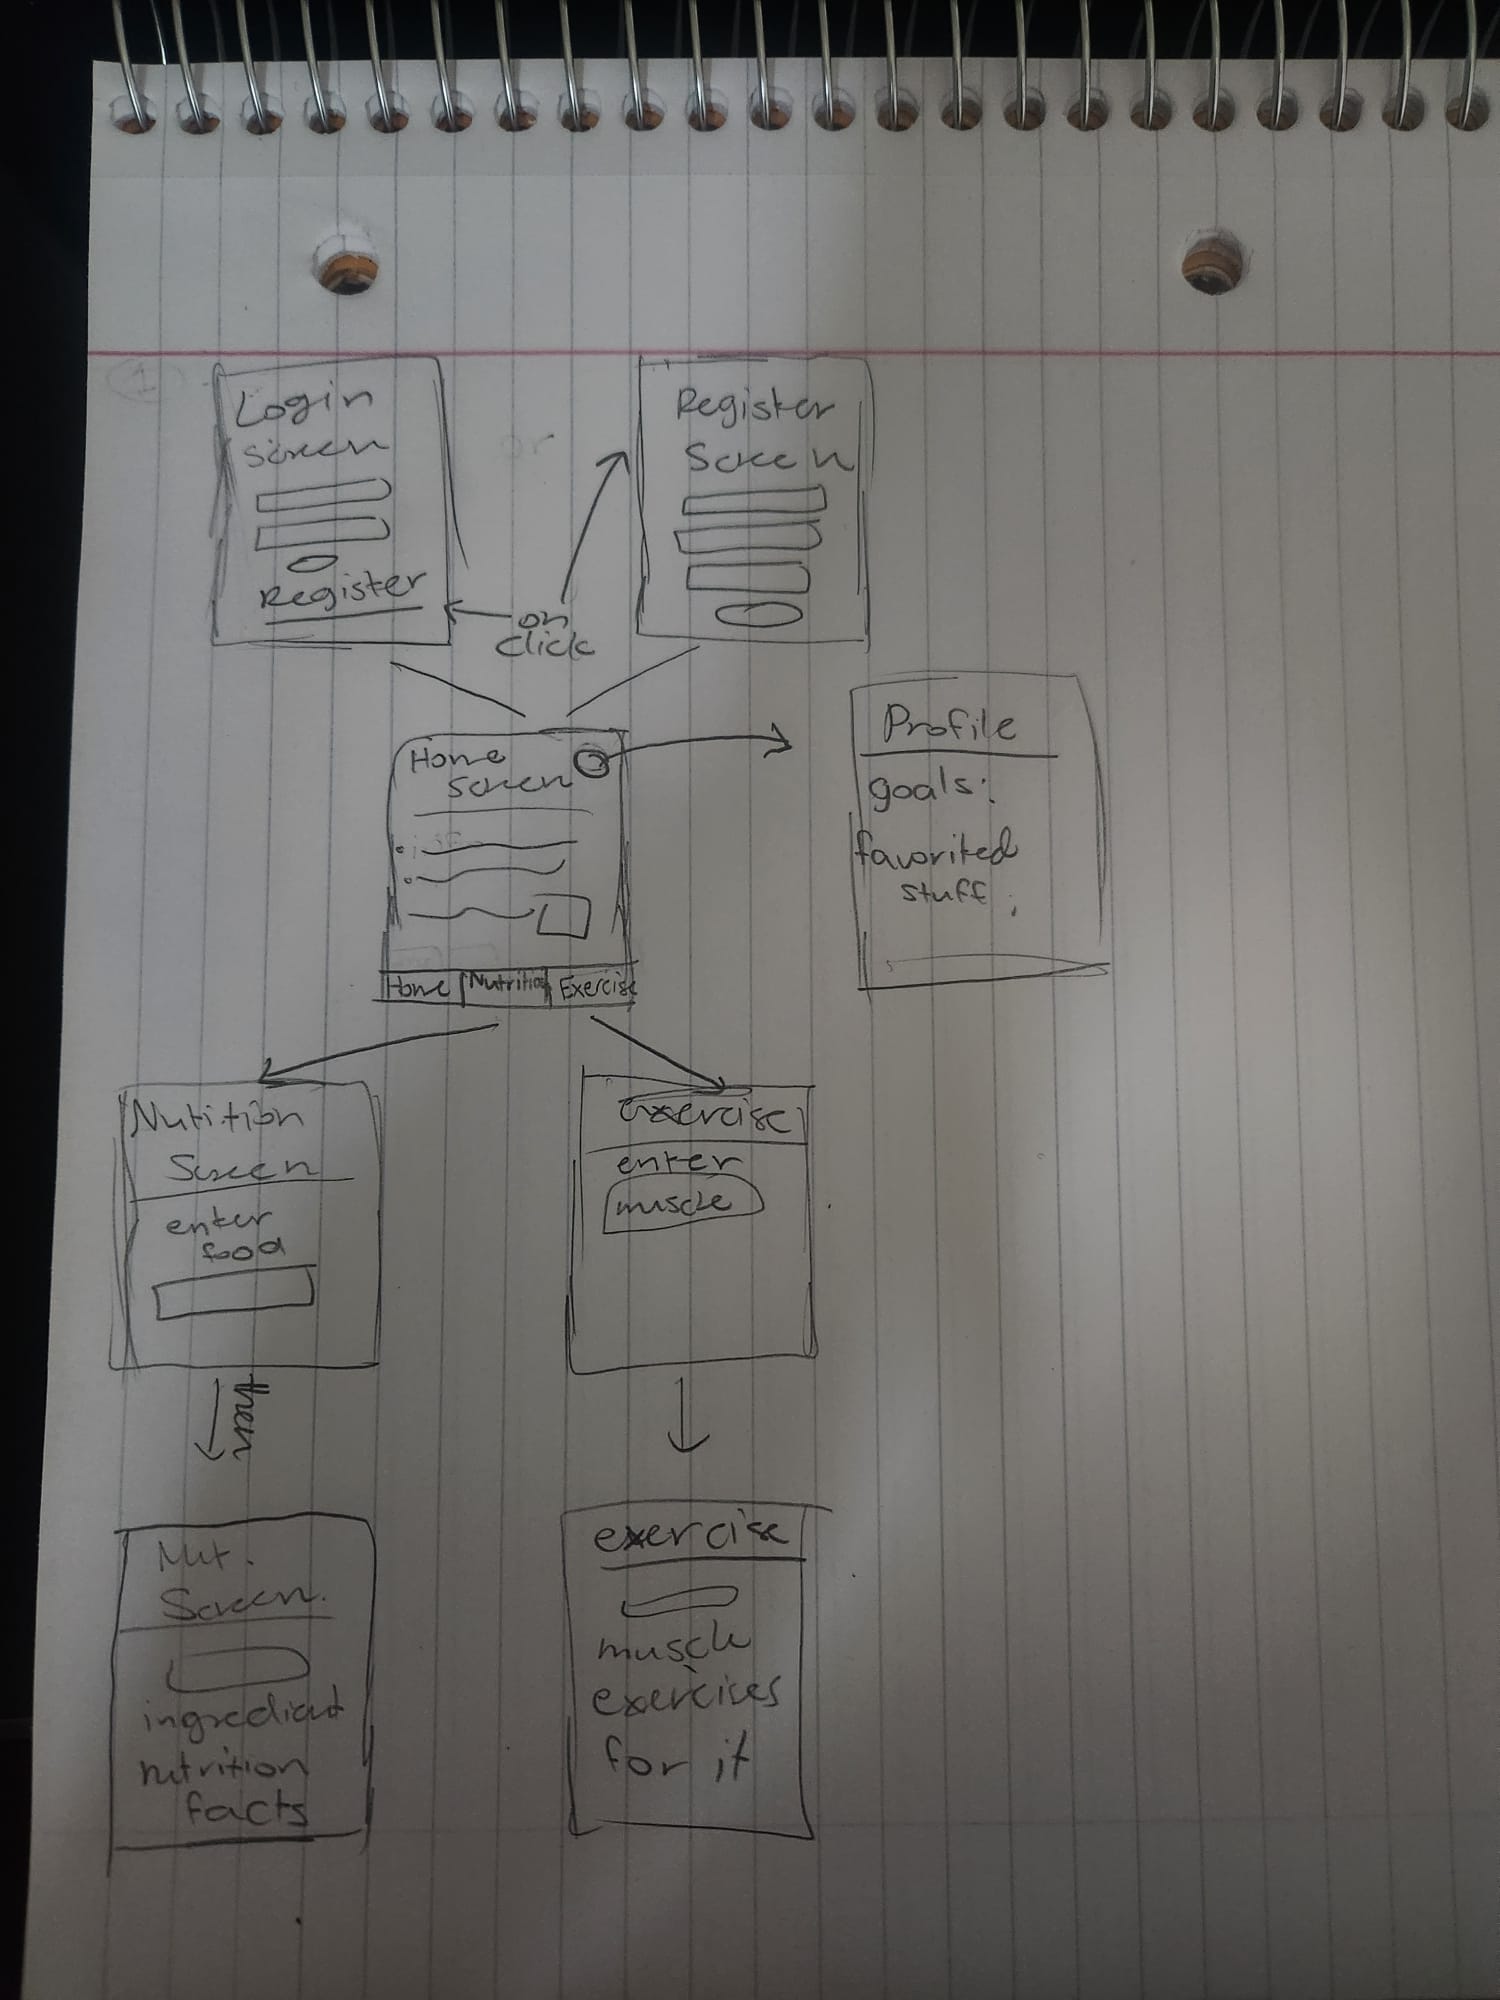 Login
Screen
Register
or
Register
Screen
on
click
Home
Screen
Home Nutrition Exercise
Profile
goals:
favorited
stuff:
Nutrition
Screen
enter
food
exercise
enter
muscle
then
Nut.
Screen.
ingredient
nutrition
facts
exercise
muscle
exercises
for it